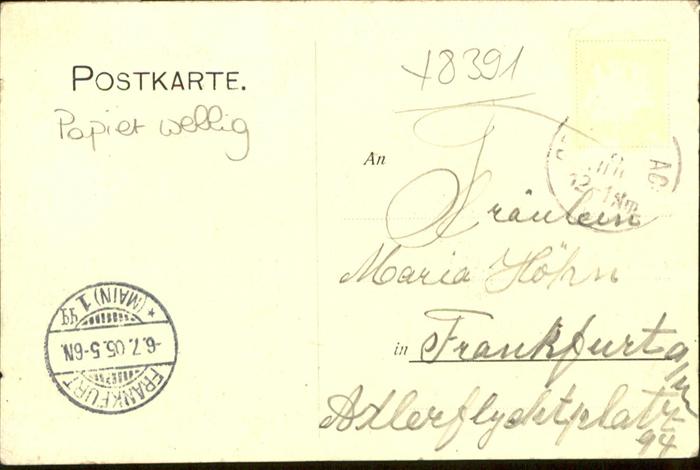 POSTKARTE.
Papier wellig
+8391
An
Fräulein
Maria Höhn
in Frankfurt a/M
Adlerflychtplatz
94
AG
12-1 Nm
* (MAIN) 1 *
-6.7.05.5-6N.
FRANKFURT